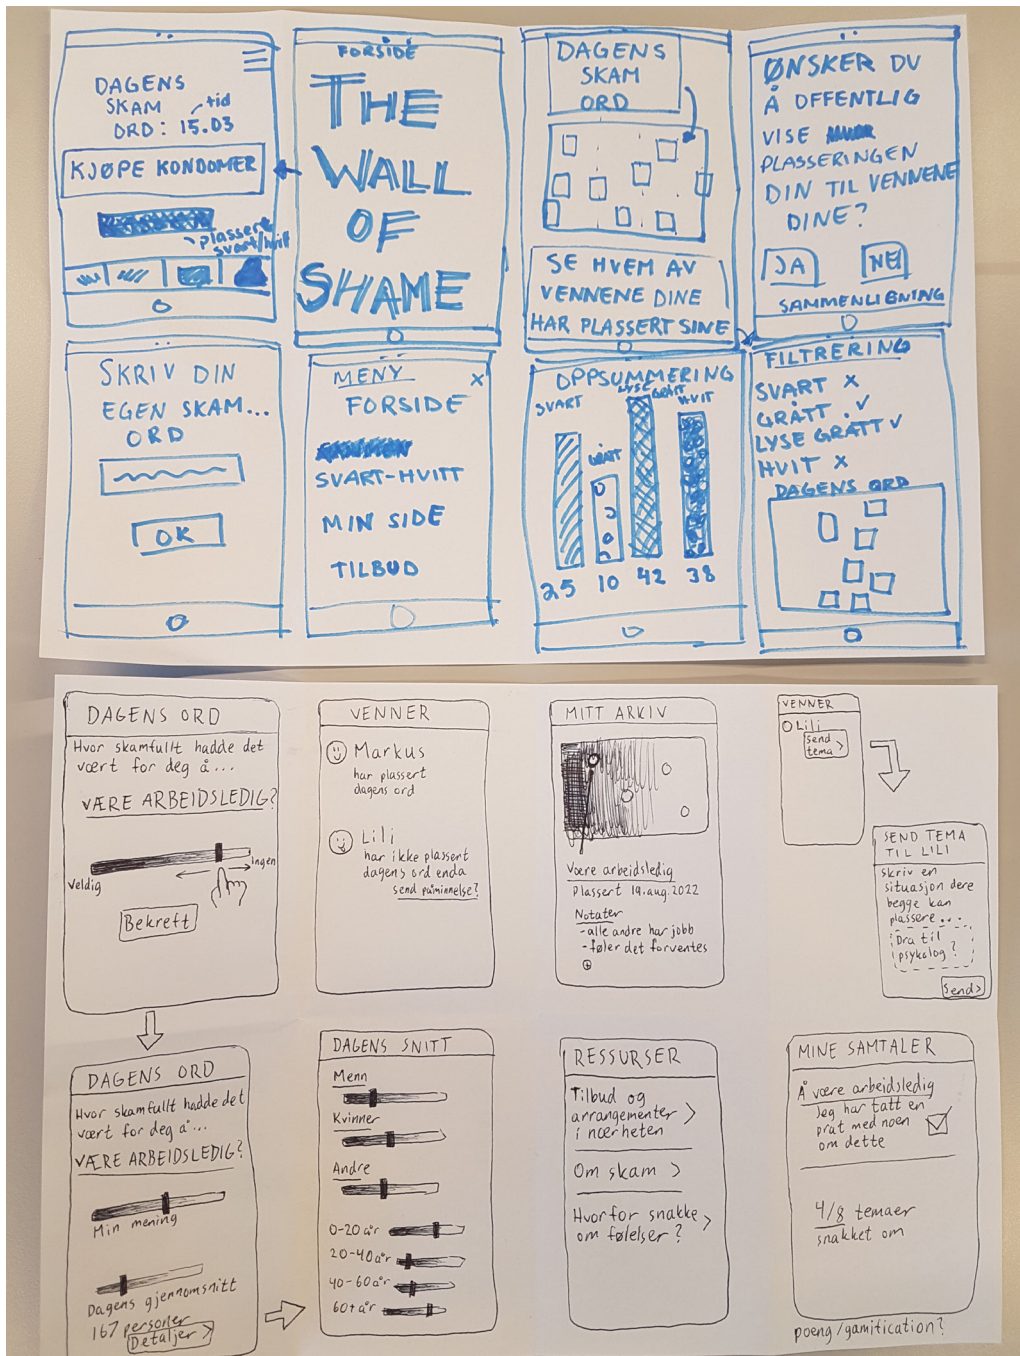 DAGENS
SKAM
ORD: 15.03
tid
KJØPE KONDOMER
plassert
svart/hvitt
FORSIDE
THE
WALL
OF
SHAME
DAGENS
SKAM
ORD
SE HVEM AV
VENNENE DINE
HAR PLASSERT SINE
ØNSKER DU
Å OFFENTLIG
VISE
PLASSERINGEN
DIN TIL VENNENE
DINE?
JA
NEI
SAMMENLIGNING
SKRIV DIN
EGEN SKAM...
ORD
OK
MENY
X
FORSIDE
SVART-HVITT
MIN SIDE
TILBUD
OPPSUMMERING
SVART
GRÅTT
LYSE
GRÅTT
HVIT
25
10
42
38
FILTRERING
SVART X
GRÅTT ✓
LYSE GRÅTT ✓
HVIT X
DAGENS ORD
DAGENS ORD
Hvor skamfullt hadde det
vært for deg å...
VÆRE ARBEIDSLEDIG?
Veldig
Ingen
Bekreft
VENNER
Markus
har plassert
dagens ord
Lili
har ikke plassert
dagens ord enda
send påminnelse?
MITT ARKIV
Være arbeidsledig
Plassert 19.aug.2022
Notater
-alle andre har jobb
-føler det forventes
VENNER
Lili
Send
tema >
SEND TEMA
TIL LILI
skriv en
situasjon dere
begge kan
plassere...
Dra til
psykolog?
Send>
DAGENS ORD
Hvor skamfullt hadde det
vært for deg å...
VÆRE ARBEIDSLEDIG?
Min mening
Dagens gjennomsnitt
167 personer
Detaljer >
DAGENS SNITT
Menn
Kvinner
Andre
0-20 år
20-40 år
40-60 år
60+ år
RESSURSER
Tilbud og
arrangementer >
i nærheten
Om skam >
Hvorfor snakke >
om følelser?
MINE SAMTALER
Å være arbeidsledig
Jeg har tatt en
prat med noen
om dette
4/8 temaer
snakket om
poeng/gamification?